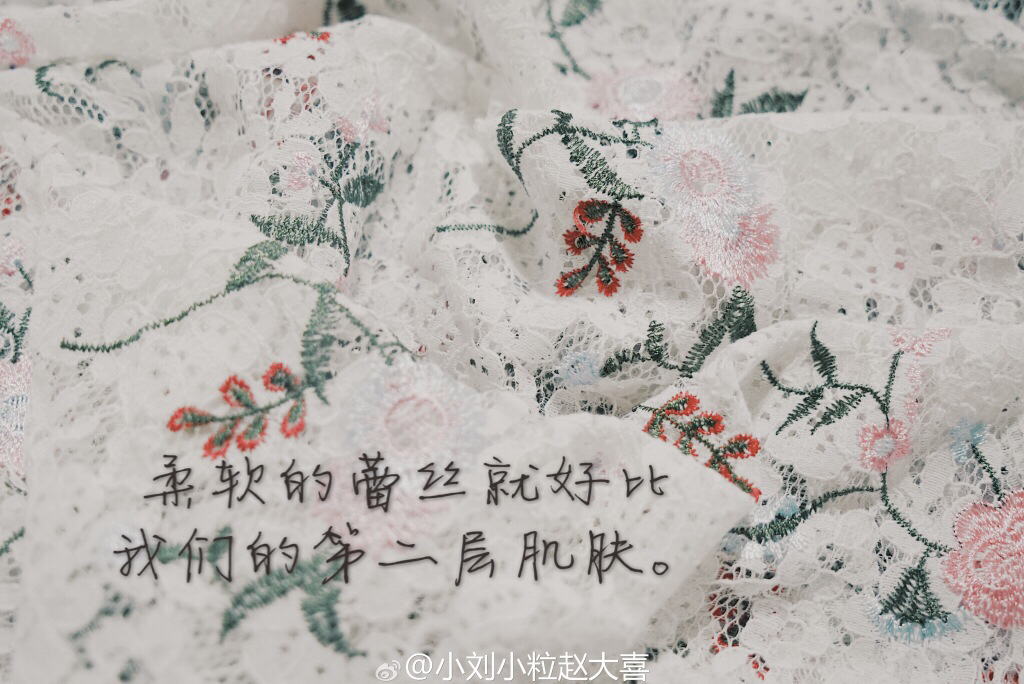 柔软的蕾丝就好比
我们的第二层肌肤。
@小刘小粒赵大喜